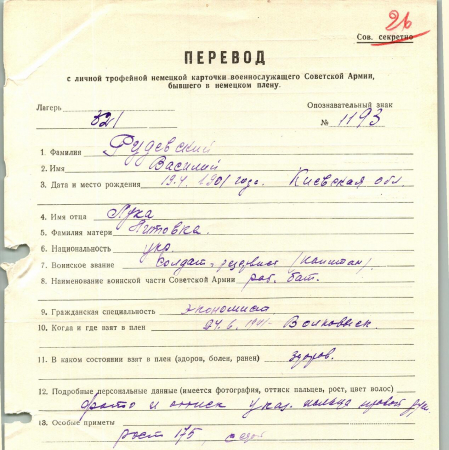 26
Сов. секретно
ПЕРЕВОД
с личной трофейной немецкой карточки военнослужащего Советской Армии,
бывшего в немецком плену.
Лагерь Опознавательный знак
321 № 1193
1. Фамилия Рудевский
2. Имя Василий
3. Дата и место рождения 19.4.1901 года. Киевская обл.
4. Имя отца Лука
5. Фамилия матери
6. Национальность укр.
7. Воинское звание Солдат - (капитан)
8. Наименование воинской части Советской Армии раб. бат.
9. Гражданская специальность экономист
10. Когда и где взят в плен 24.6.1941 Волковыск
11. В каком состоянии взят в плен (здоров, болен, ранен) здоров.
12. Подробные персональные данные (имеется фотография, оттиск пальцев, рост, цвет волос)
фото и оттиск указ. пальца правой руки
13. Особые приметы
рост 175,